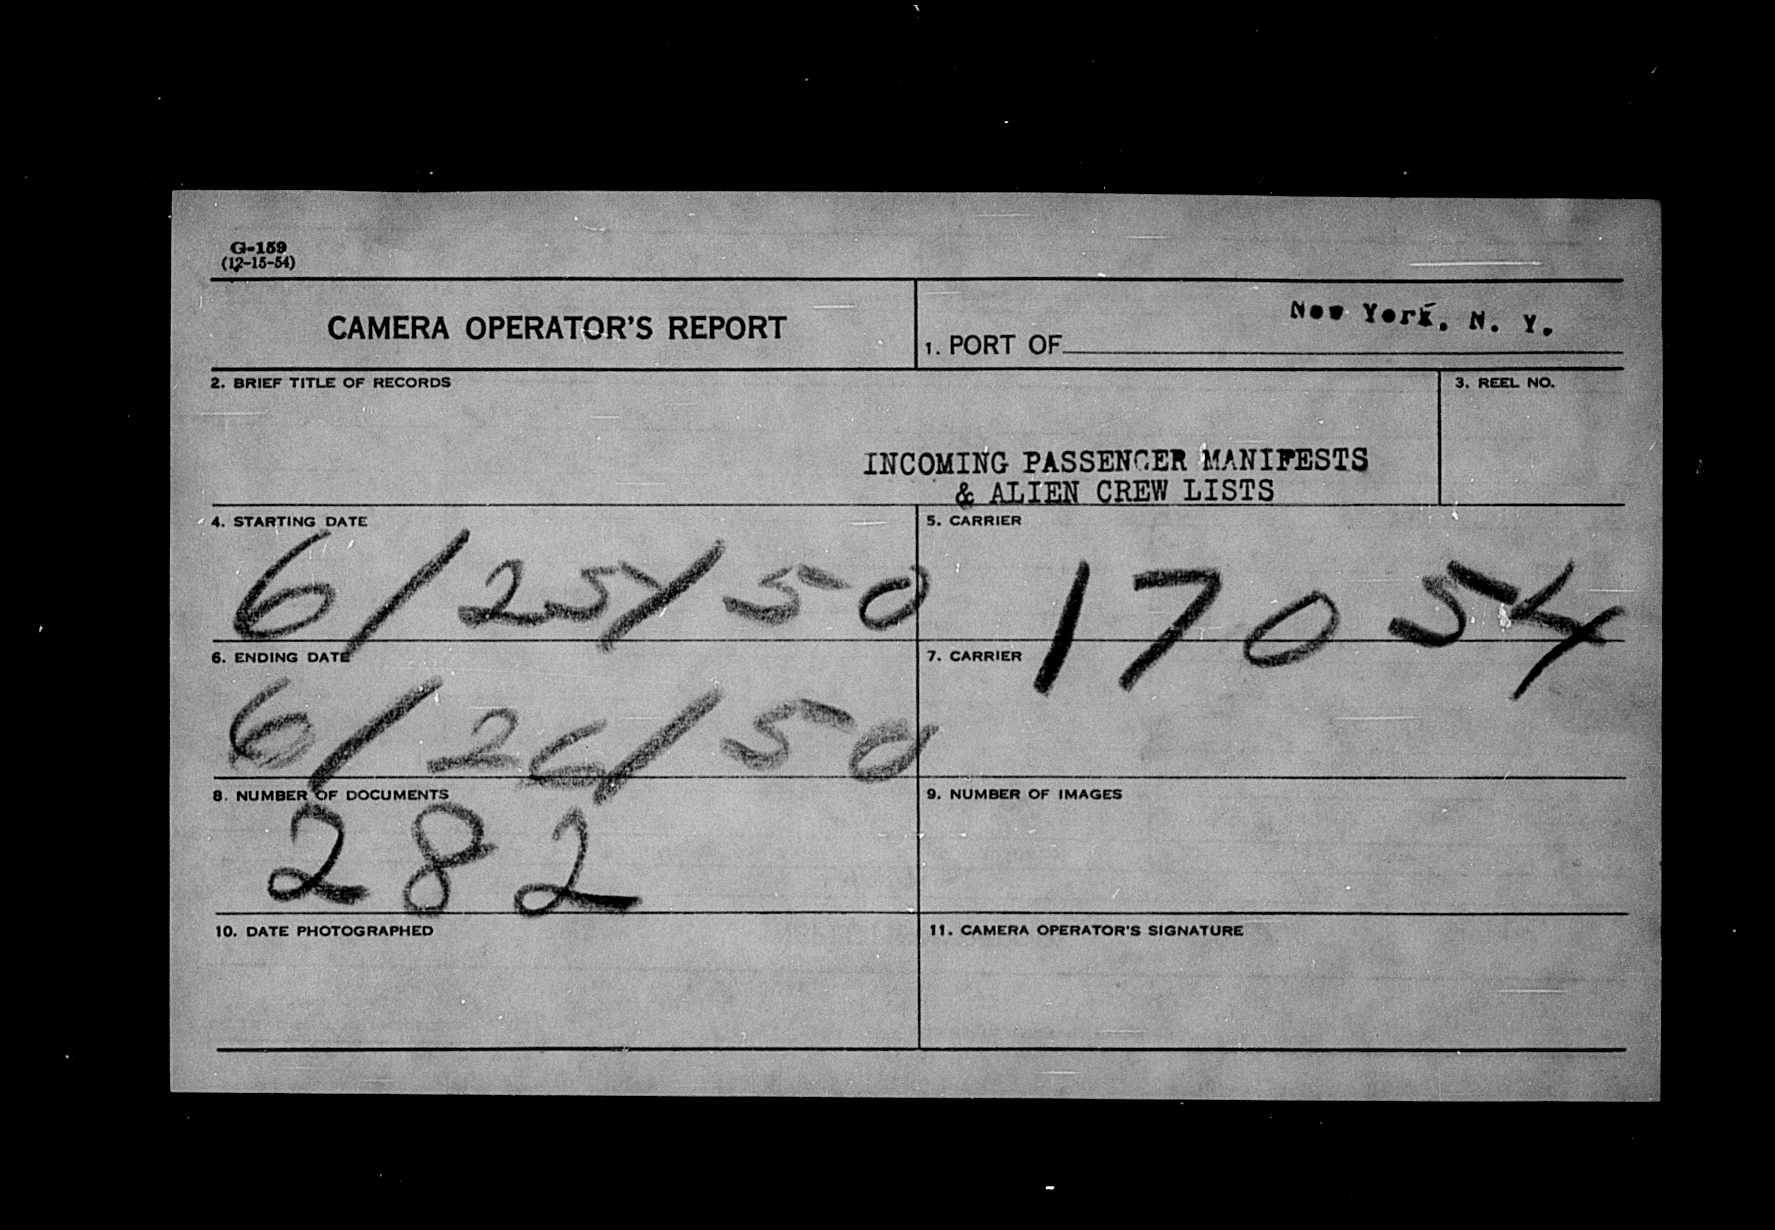 G-159
(12-15-54)
CAMERA OPERATOR'S REPORT
1. PORT OF New York, N. Y.
2. BRIEF TITLE OF RECORDS
3. REEL NO.
INCOMING PASSENGER MANIFESTS
& ALIEN CREW LISTS
4. STARTING DATE
6/25/50
5. CARRIER
17054
6. ENDING DATE
6/26/50
7. CARRIER
8. NUMBER OF DOCUMENTS
282
9. NUMBER OF IMAGES
10. DATE PHOTOGRAPHED
11. CAMERA OPERATOR'S SIGNATURE